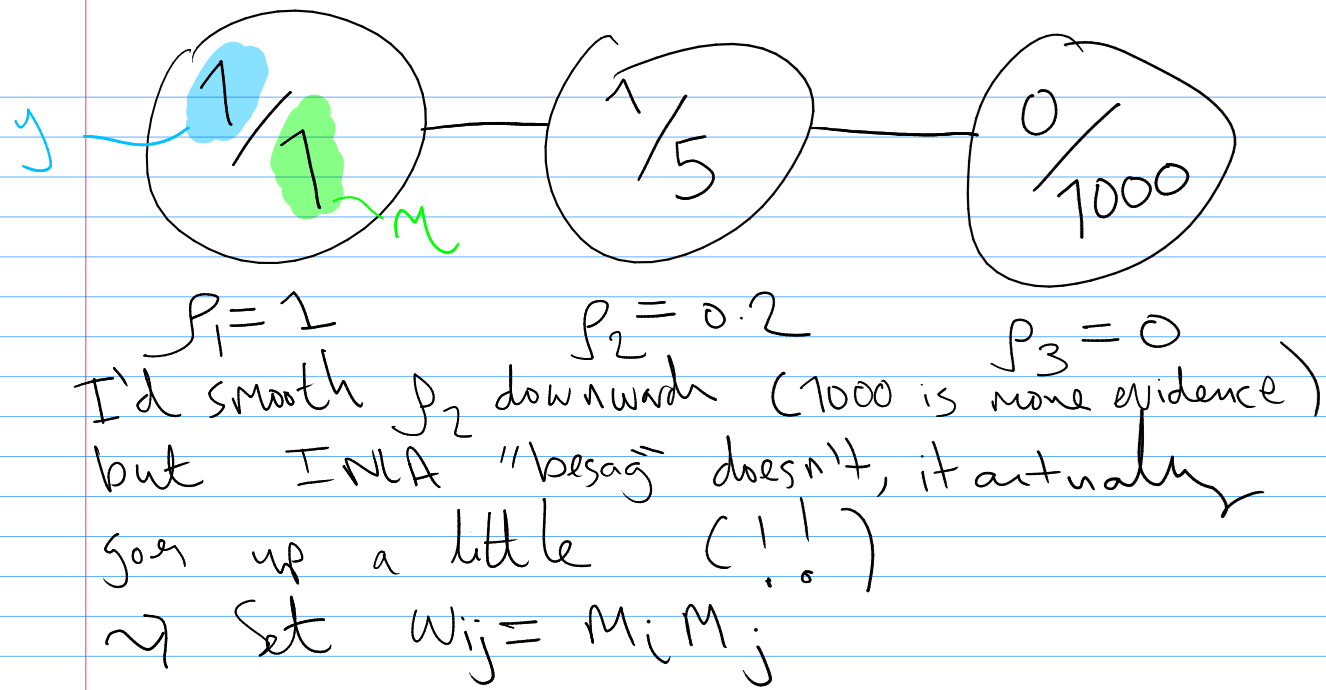 y 1/1 m 1/5 0/1000
ρ₁ = 1 ρ₂ = 0.2 ρ₃ = 0
I'd smooth ρ₂ downwards (1000 is more evidence)
but INLA "besag" doesn't, it actually
goes up a little (!!)
⇝ Set wᵢⱼ = mᵢ mⱼ